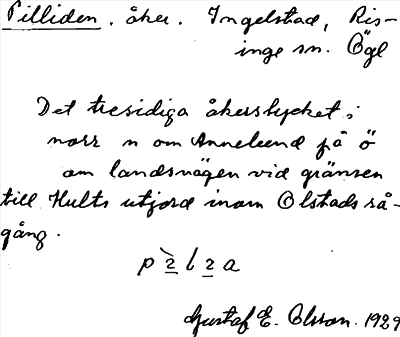 Pilliden. åker. Ingelstad, Ris-
inge sn. Ögl
Det tresidiga åkerstycket i
norr n om Annelund på ö
om landsvägen vid gränsen
till Hults utjord inom Olstads rå-
gång.
Gustaf E. Olsson. 1929